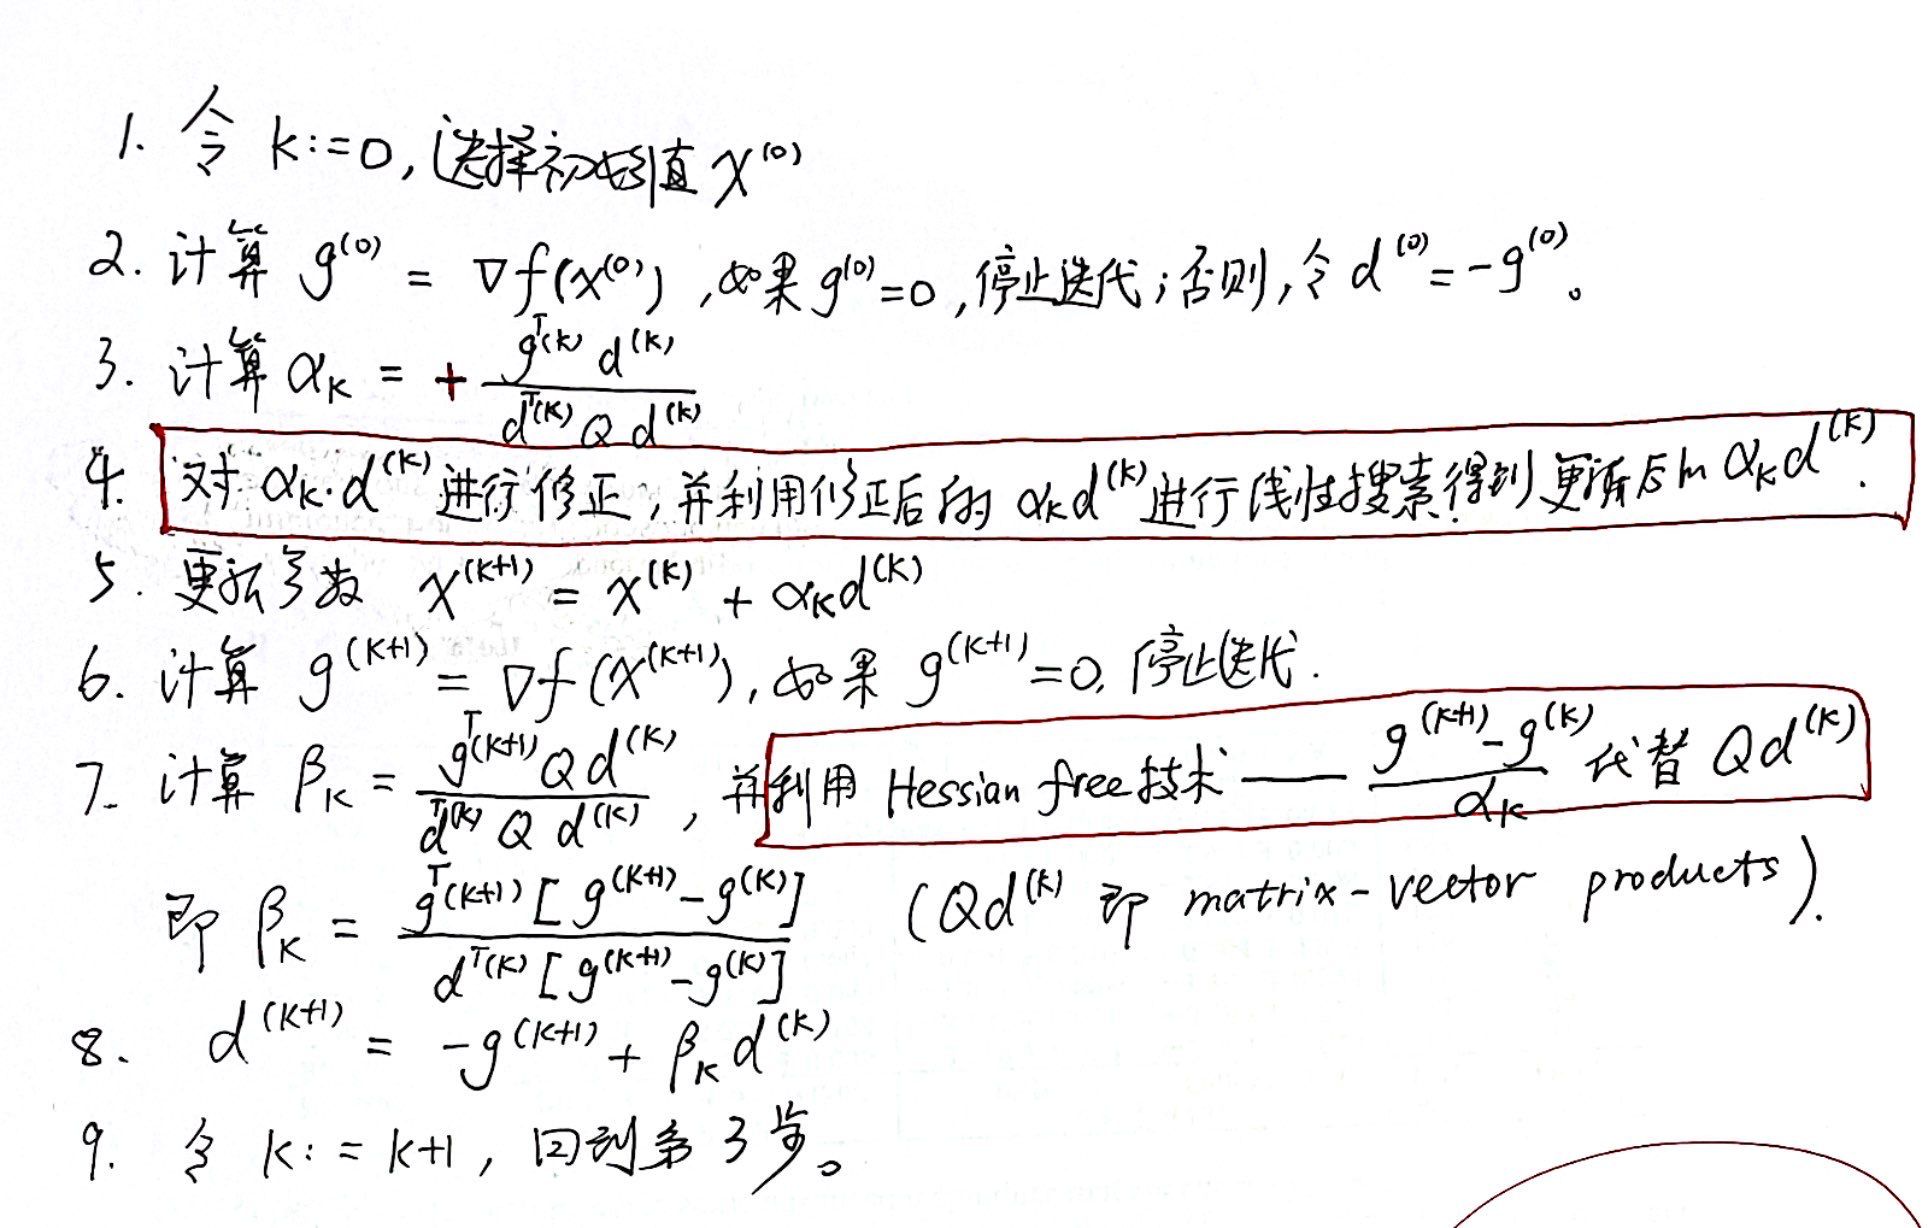 1. 令 k:=0, 选择初始值 x^(0)
2. 计算 g^(0) = ∇f(x^(0)), 如果 g^(0)=0, 停止迭代; 否则, 令 d^(0) = -g^(0)。
3. 计算 α_k = + g^T(k) d^(k) / d^T(k) Q d^(k)
4. 对 α_k·d^(k) 进行修正, 并利用修正后的 α_k d^(k) 进行线性搜索得到更新后的 α_k d^(k).
5. 更新参数 x^(k+1) = x^(k) + α_k d^(k)
6. 计算 g^(k+1) = ∇f(x^(k+1)), 如果 g^(k+1)=0, 停止迭代.
7. 计算 β_k = g^T(k+1) Q d^(k) / d^T(k) Q d^(k), 并利用 Hessian free 技术 —— g^(k+1) - g^(k) / α_k 代替 Qd^(k)
即 β_k = g^T(k+1) [g^(k+1) - g^(k)] / d^T(k) [g^(k+1) - g^(k)] (Qd^(k) 即 matrix-vector products).
8. d^(k+1) = -g^(k+1) + β_k d^(k)
9. 令 k:=k+1, 回到第3步。